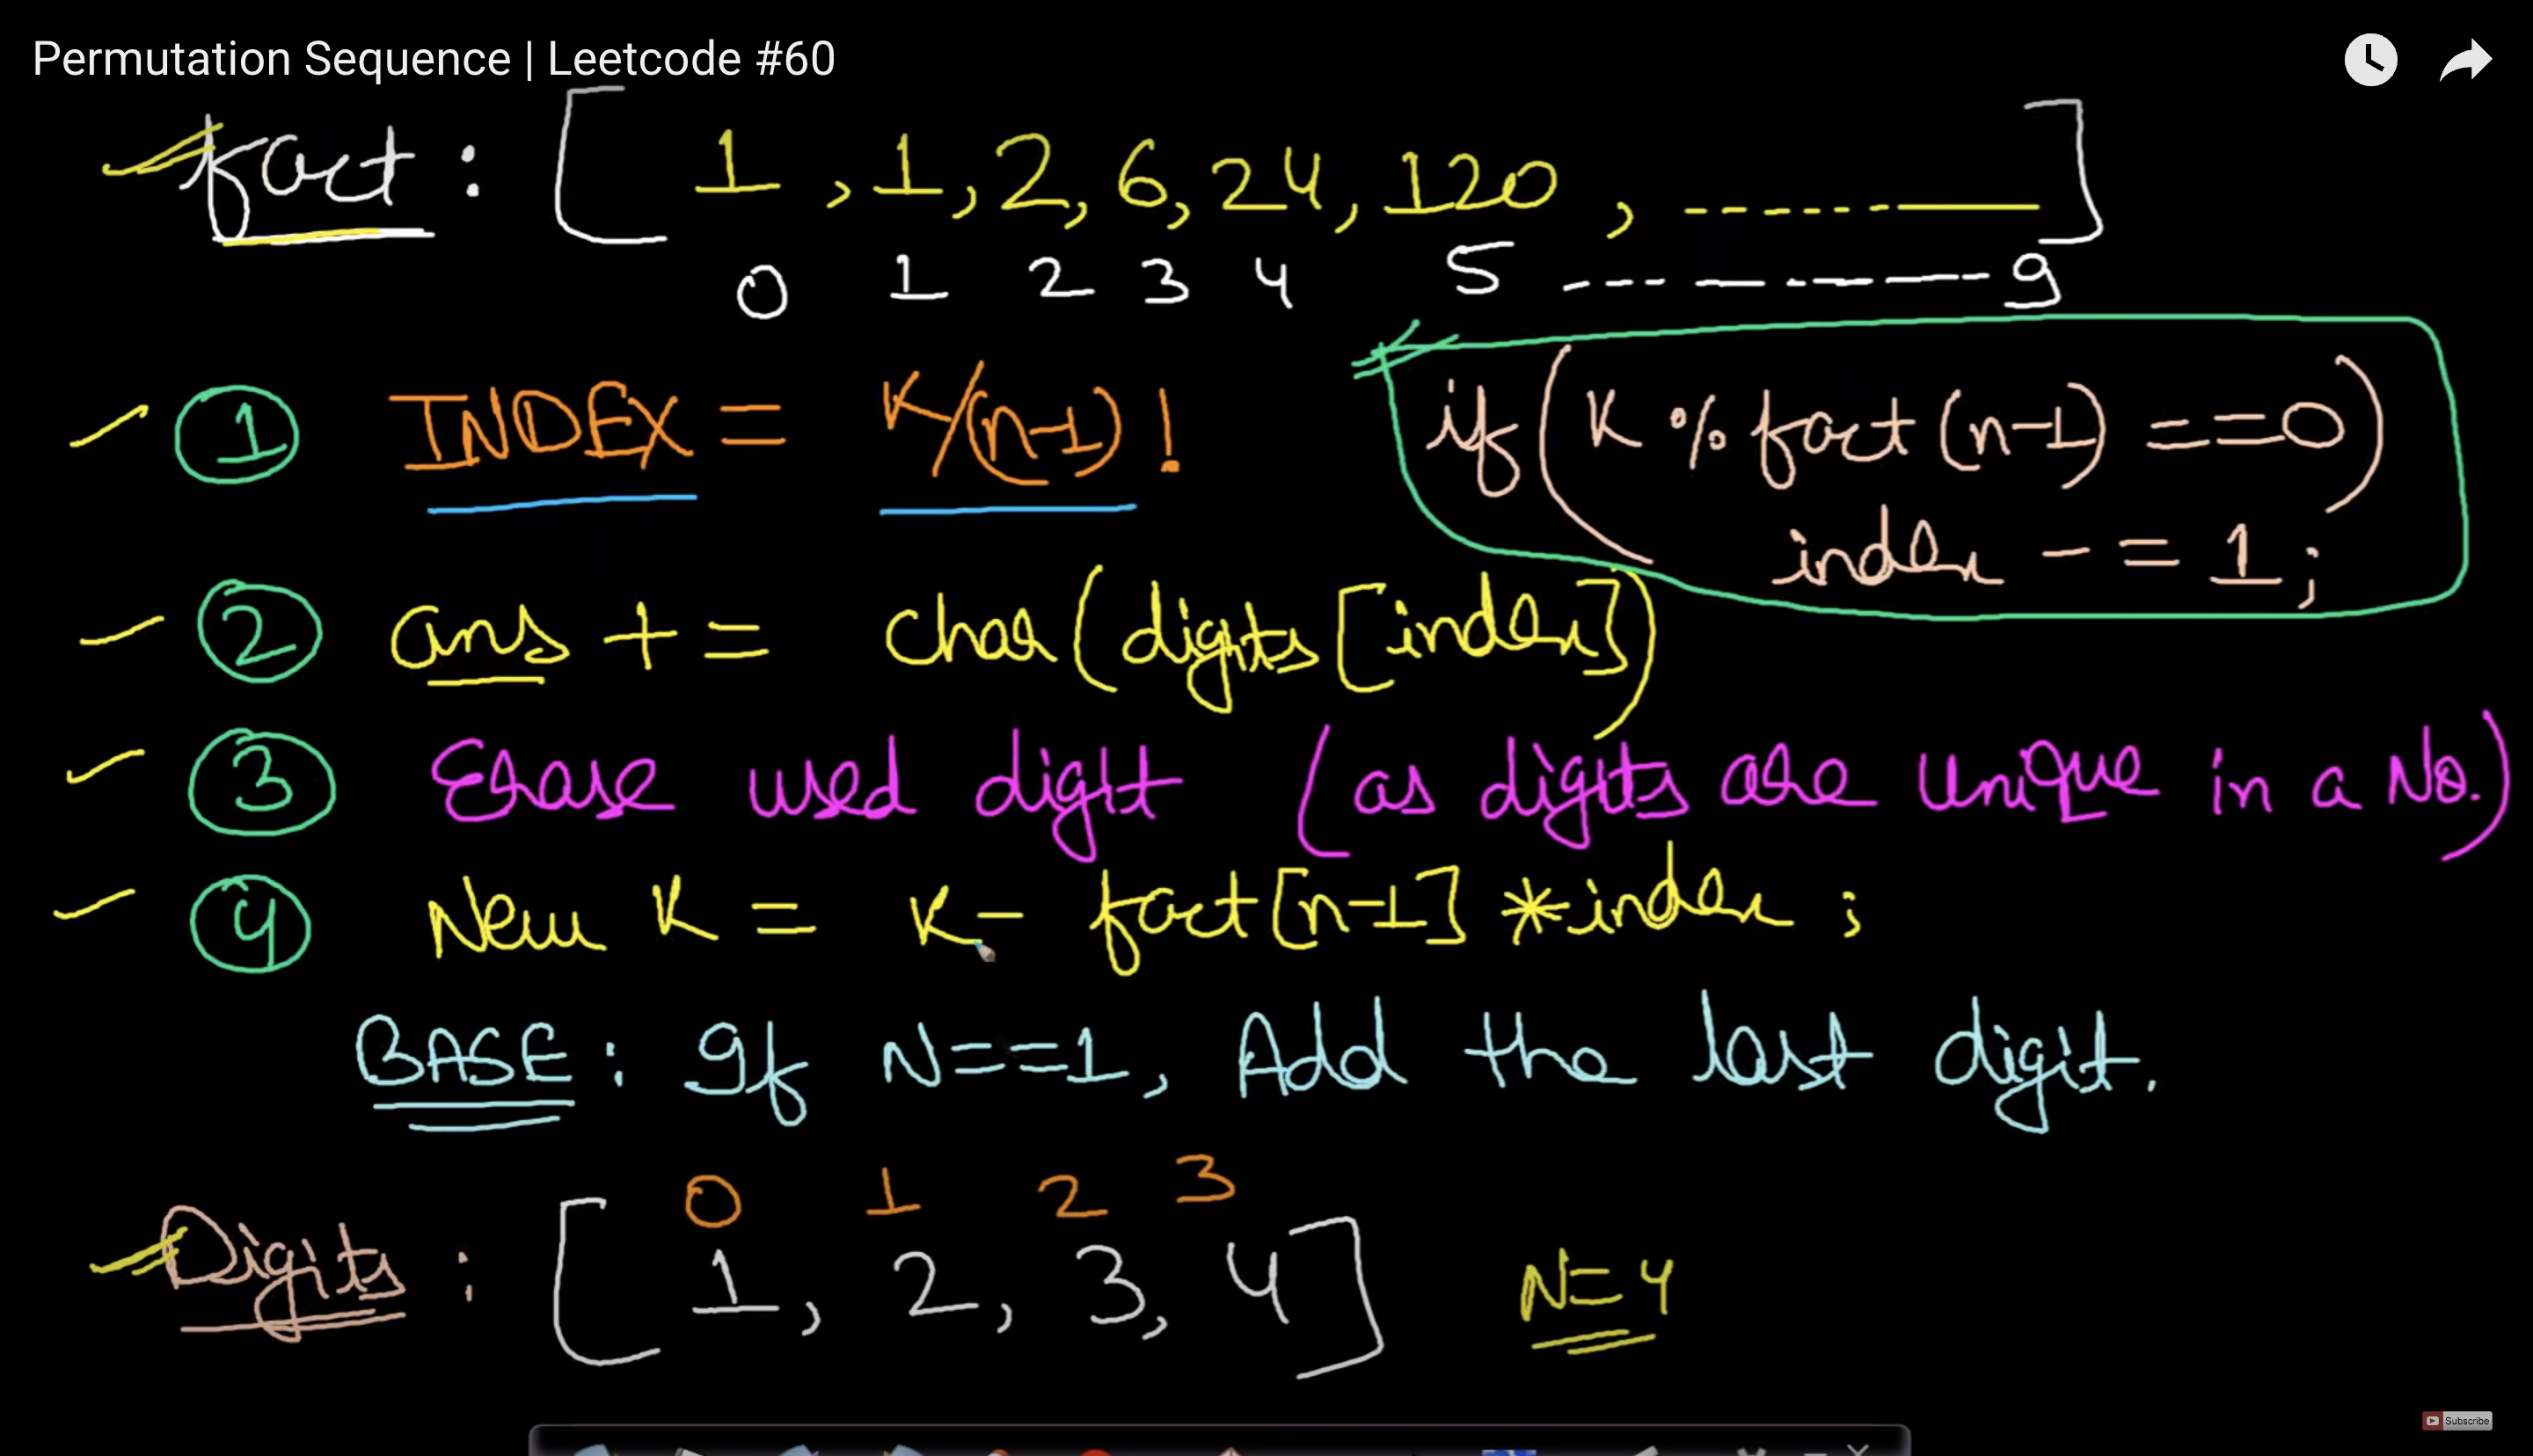 Permutation Sequence | Leetcode #60
fact : [ 1 , 1, 2, 6, 24, 120 , ------ ]
0 1 2 3 4 5 ------ 9
① INDEX = K/(n-1) !
if ( K % fact (n-1) ==0)
index - = 1 ;
② ans + = char(digits [index])
③ Erase used digit (as digits are unique in a No.)
④ New K = K - fact[n-1] * index ;
BASE : If N==1, Add the last digit.
0 1 2 3
Digits : [ 1, 2, 3, 4 ] N=4
Subscribe